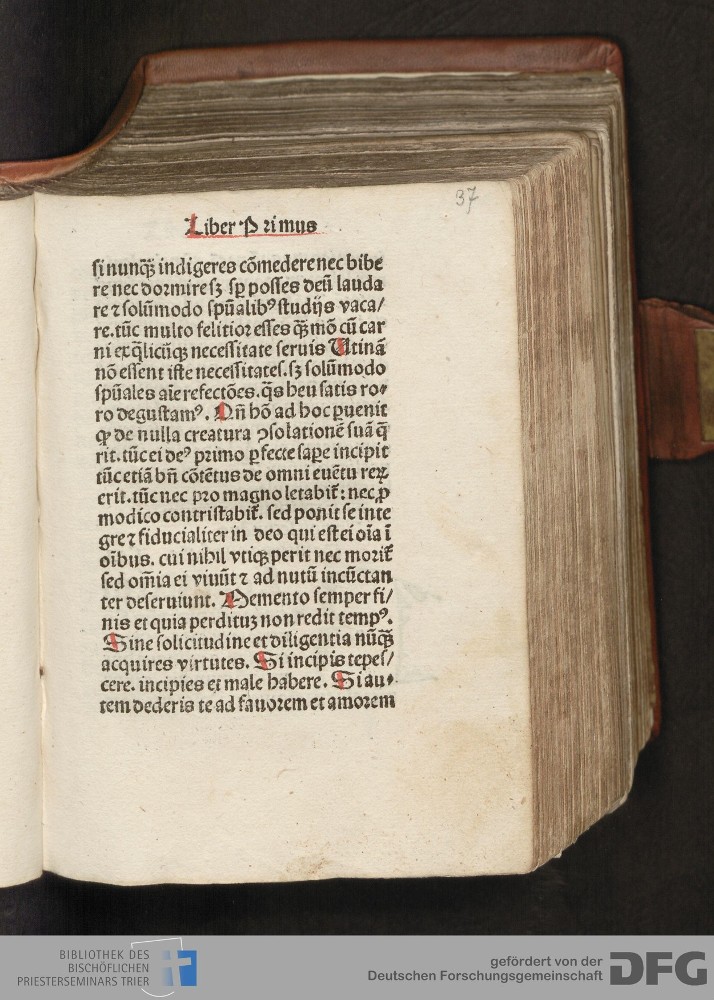 37
Liber Primus
si nunq̄ꝫ indigeres cōmedere nec bibe
re nec dormire sꝫ sꝑ posses deū lauda
re ⁊ solūmodo spūalibꝰ studijs vaca/
re. tūc multo felitior esses q̄ꝫ mō cū car
ni ex q̄licūqꝫ necessitate seruis Utinā
nō essent iste necessitates. sꝫ solūmodo
spūales aīe refectōes. q̄s heu satis ro-
ro degustamꝰ. Qn̄ hō ad hoc ꝑuenit
ꝙ de nulla creatura ↄsolationē suā q̄
rit. tūc ei deꝰ primo ꝑfecte saꝑe incipit
tūc etiā bn̄ cōtētus de omni euētu reꝝ
erit. tūc nec pro magno letabit̄: nec ꝓ
modico contristabit̄. sed ponit se inte
gre ⁊ fiducialiter in deo qui est ei oīa ī
oībus. cui nihil vtiqꝫ perit nec morit̄
sed om̄ia ei viuūt ⁊ ad nutū incūctan
ter deseruiunt. Memento semper fi/
nis et quia perdituꝫ non redit tempꝰ.
Sine solicitudine et diligentia nūq̄ꝫ
acquires virtutes. Si incipis tepes/
cere. incipies et male habere. Si au-
tem dederis te ad fauorem et amorem
BIBLIOTHEK DES
BISCHÖFLICHEN
PRIESTERSEMINARS TRIER
gefördert von der
Deutschen Forschungsgemeinschaft
DFG